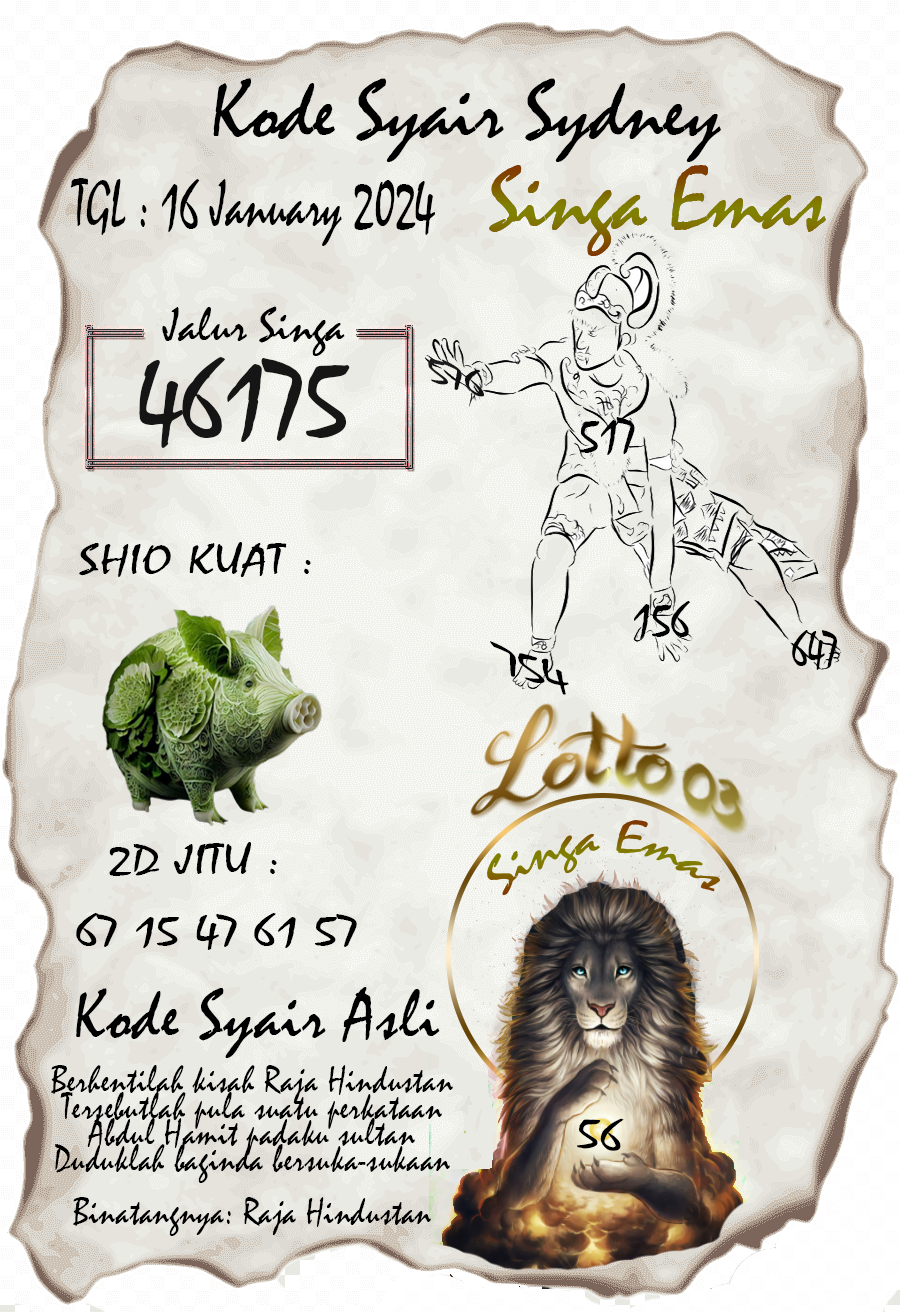 Kode Syair Sydney
TGL : 16 January 2024
Singa Emas
Jalur Singa
46175
576
517
156
647
754
SHIO KUAT :
Lotto 03
Singa Emas
2D JITU :
67 15 47 61 57
56
Kode Syair Asli
Berhentilah kisah Raja Hindustan
Tersebutlah pula suatu perkataan
Abdul Hamit padaku sultan
Duduklah baginda bersuka-sukaan
Binatangnya: Raja Hindustan